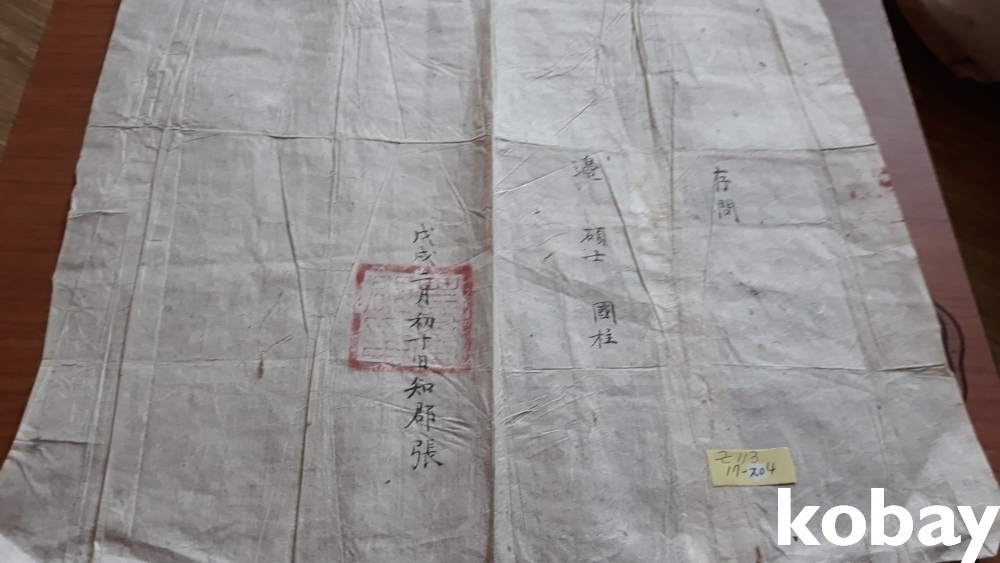 存問
邊 碩士 國柱
戊戌二月初十日知郡張
乙113
17-204
kobay